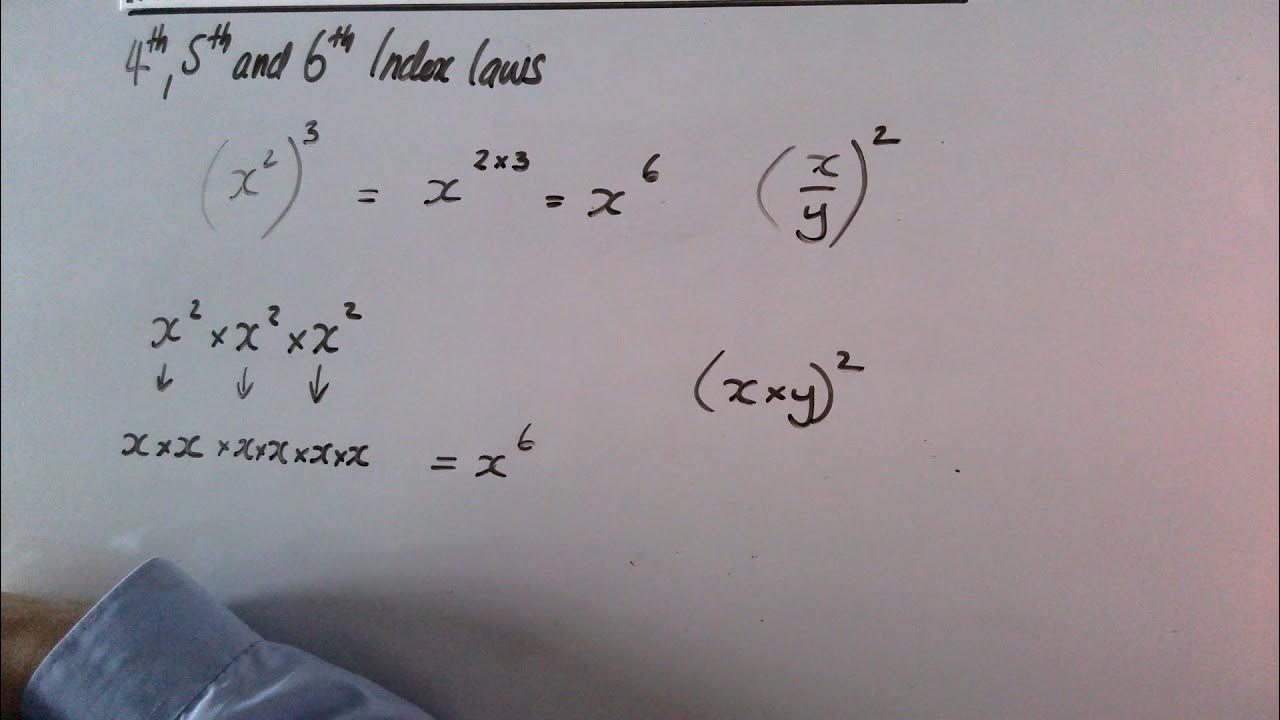 4th, 5th and 6th Index laws
(x²)³ = x^(2×3) = x⁶
(x/y)²
x² × x² × x²
↓ ↓ ↓
(x×y)²
x×x ×x×x×x×x = x⁶